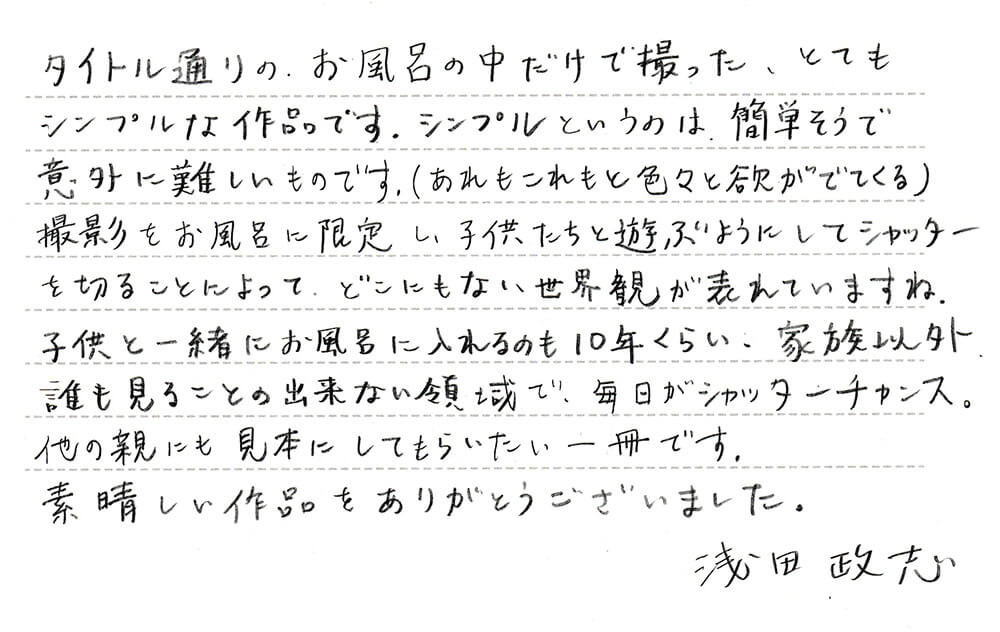 タイトル通りの、お風呂の中だけで撮った、とても
シンプルな作品です。シンプルというのは、簡単そうで
意外に難しいものです。(あれもこれもと色々と欲がでてくる)
撮影をお風呂に限定し、子供たちと遊ぶようにしてシャッター
を切ることによって、どこにもない世界観が表れていますね。
子供と一緒にお風呂に入れるのも10年くらい、家族以外
誰も見ることの出来ない領域で、毎日がシャッターチャンス。
他の親にも見本にしてもらいたい一冊です。
素晴しい作品をありがとうございました。
浅田政志